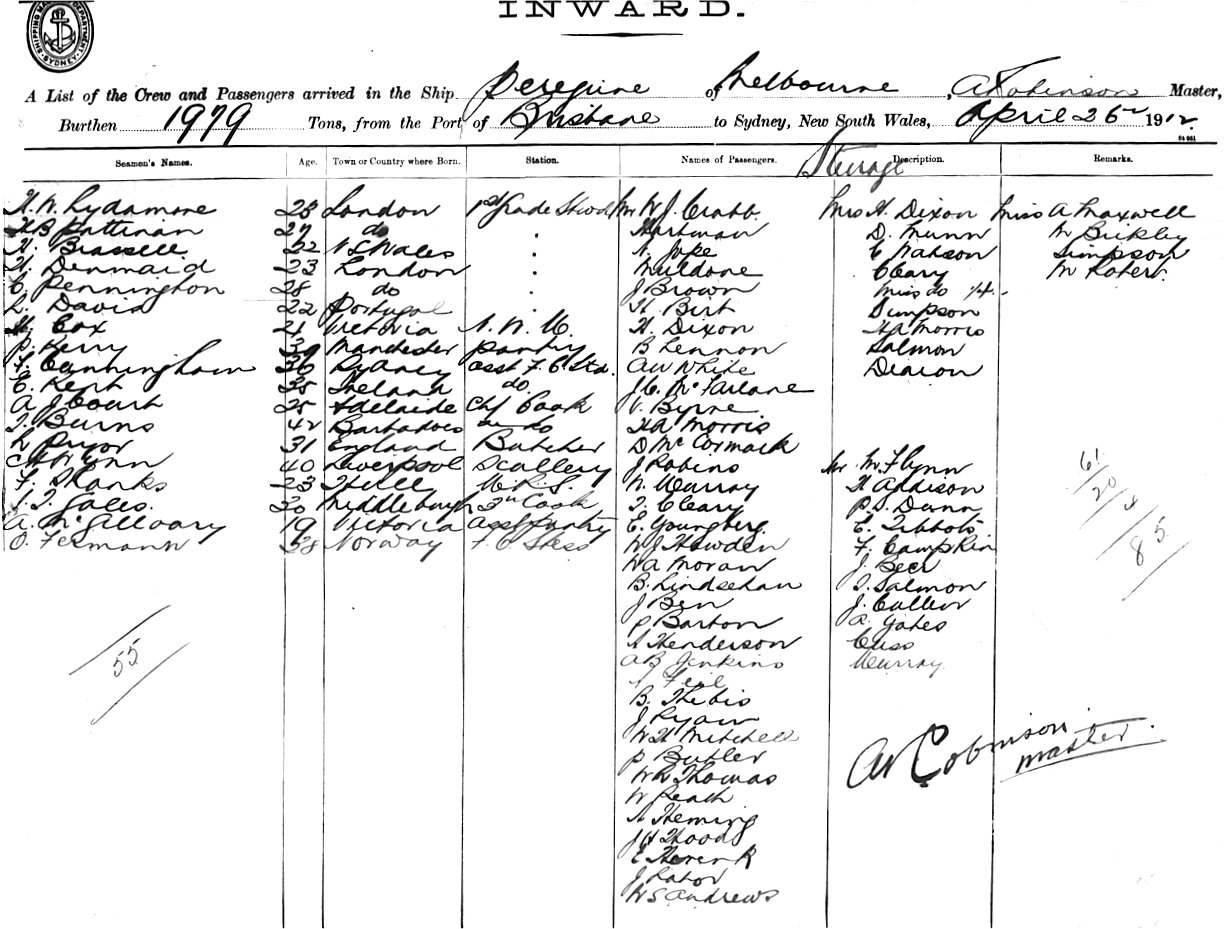 INWARD.
SHIPPING MASTER'S DEPARTMENT SYDNEY
A List of the Crew and Passengers arrived in the Ship Peregrine of Melbourne, Master,
Burthen 1979 Tons, from the Port of Brisbane to Sydney, New South Wales, April 26 1912
Seamen's Names. Age. Town or Country where Born. Station. Names of Passengers. Description. Remarks.
Steerage
23 London 1st Grade Mr W. J. Crabb. Mrs H. Dixon Miss A Maxwell
27 do Hartman D. Munn
22 N S Wales E Watson Simpson
H. Denmaid 23 London Muldone Cleary
C. Pennington 28 do J Brown Miss do
L. David 22 Portugal H. Birt Simpson
H. Cox 21 Victoria H. Dixon HA Morris
P. Kerry 39 Manchester Pantry B Lennon Salmon
F. Cunningham 36 Sydney asst F. C. Std. A W White Deacon
E. Kent 35 Ireland do. J. C. McFarlane
A J Court 25 Adelaide Chf Cook V. Byrne
T. Burns 42 Barbadoes do HA Morris
L Pryor 31 England Butcher D. McCormack
40 Liverpool Scullery J Robins Mr M. Flynn
F. Shanks 23 Hull Murray H Addison
Gales. 30 Middlesburgh 3rd Cook T Cleary P. S. Dunn
A. McGillvary 19 Victoria asst Pantry E. Youngberg. E. Tibbots
O. Fermann 38 Norway W J Howden F. Campkin
W A Moran J. Beer
B. Lindsehan Salmon
J Ben J. Cullen
P Barton A. Yates
Henderson Cuss
A B Jenkins Murray
Feil
B. Thebis
J Ryan
W H Mitchell
P Butler
W R Thomas
W Peach
Heming
J H Hood
E
J
W S Andrews
55
61
20
4
85
Master.